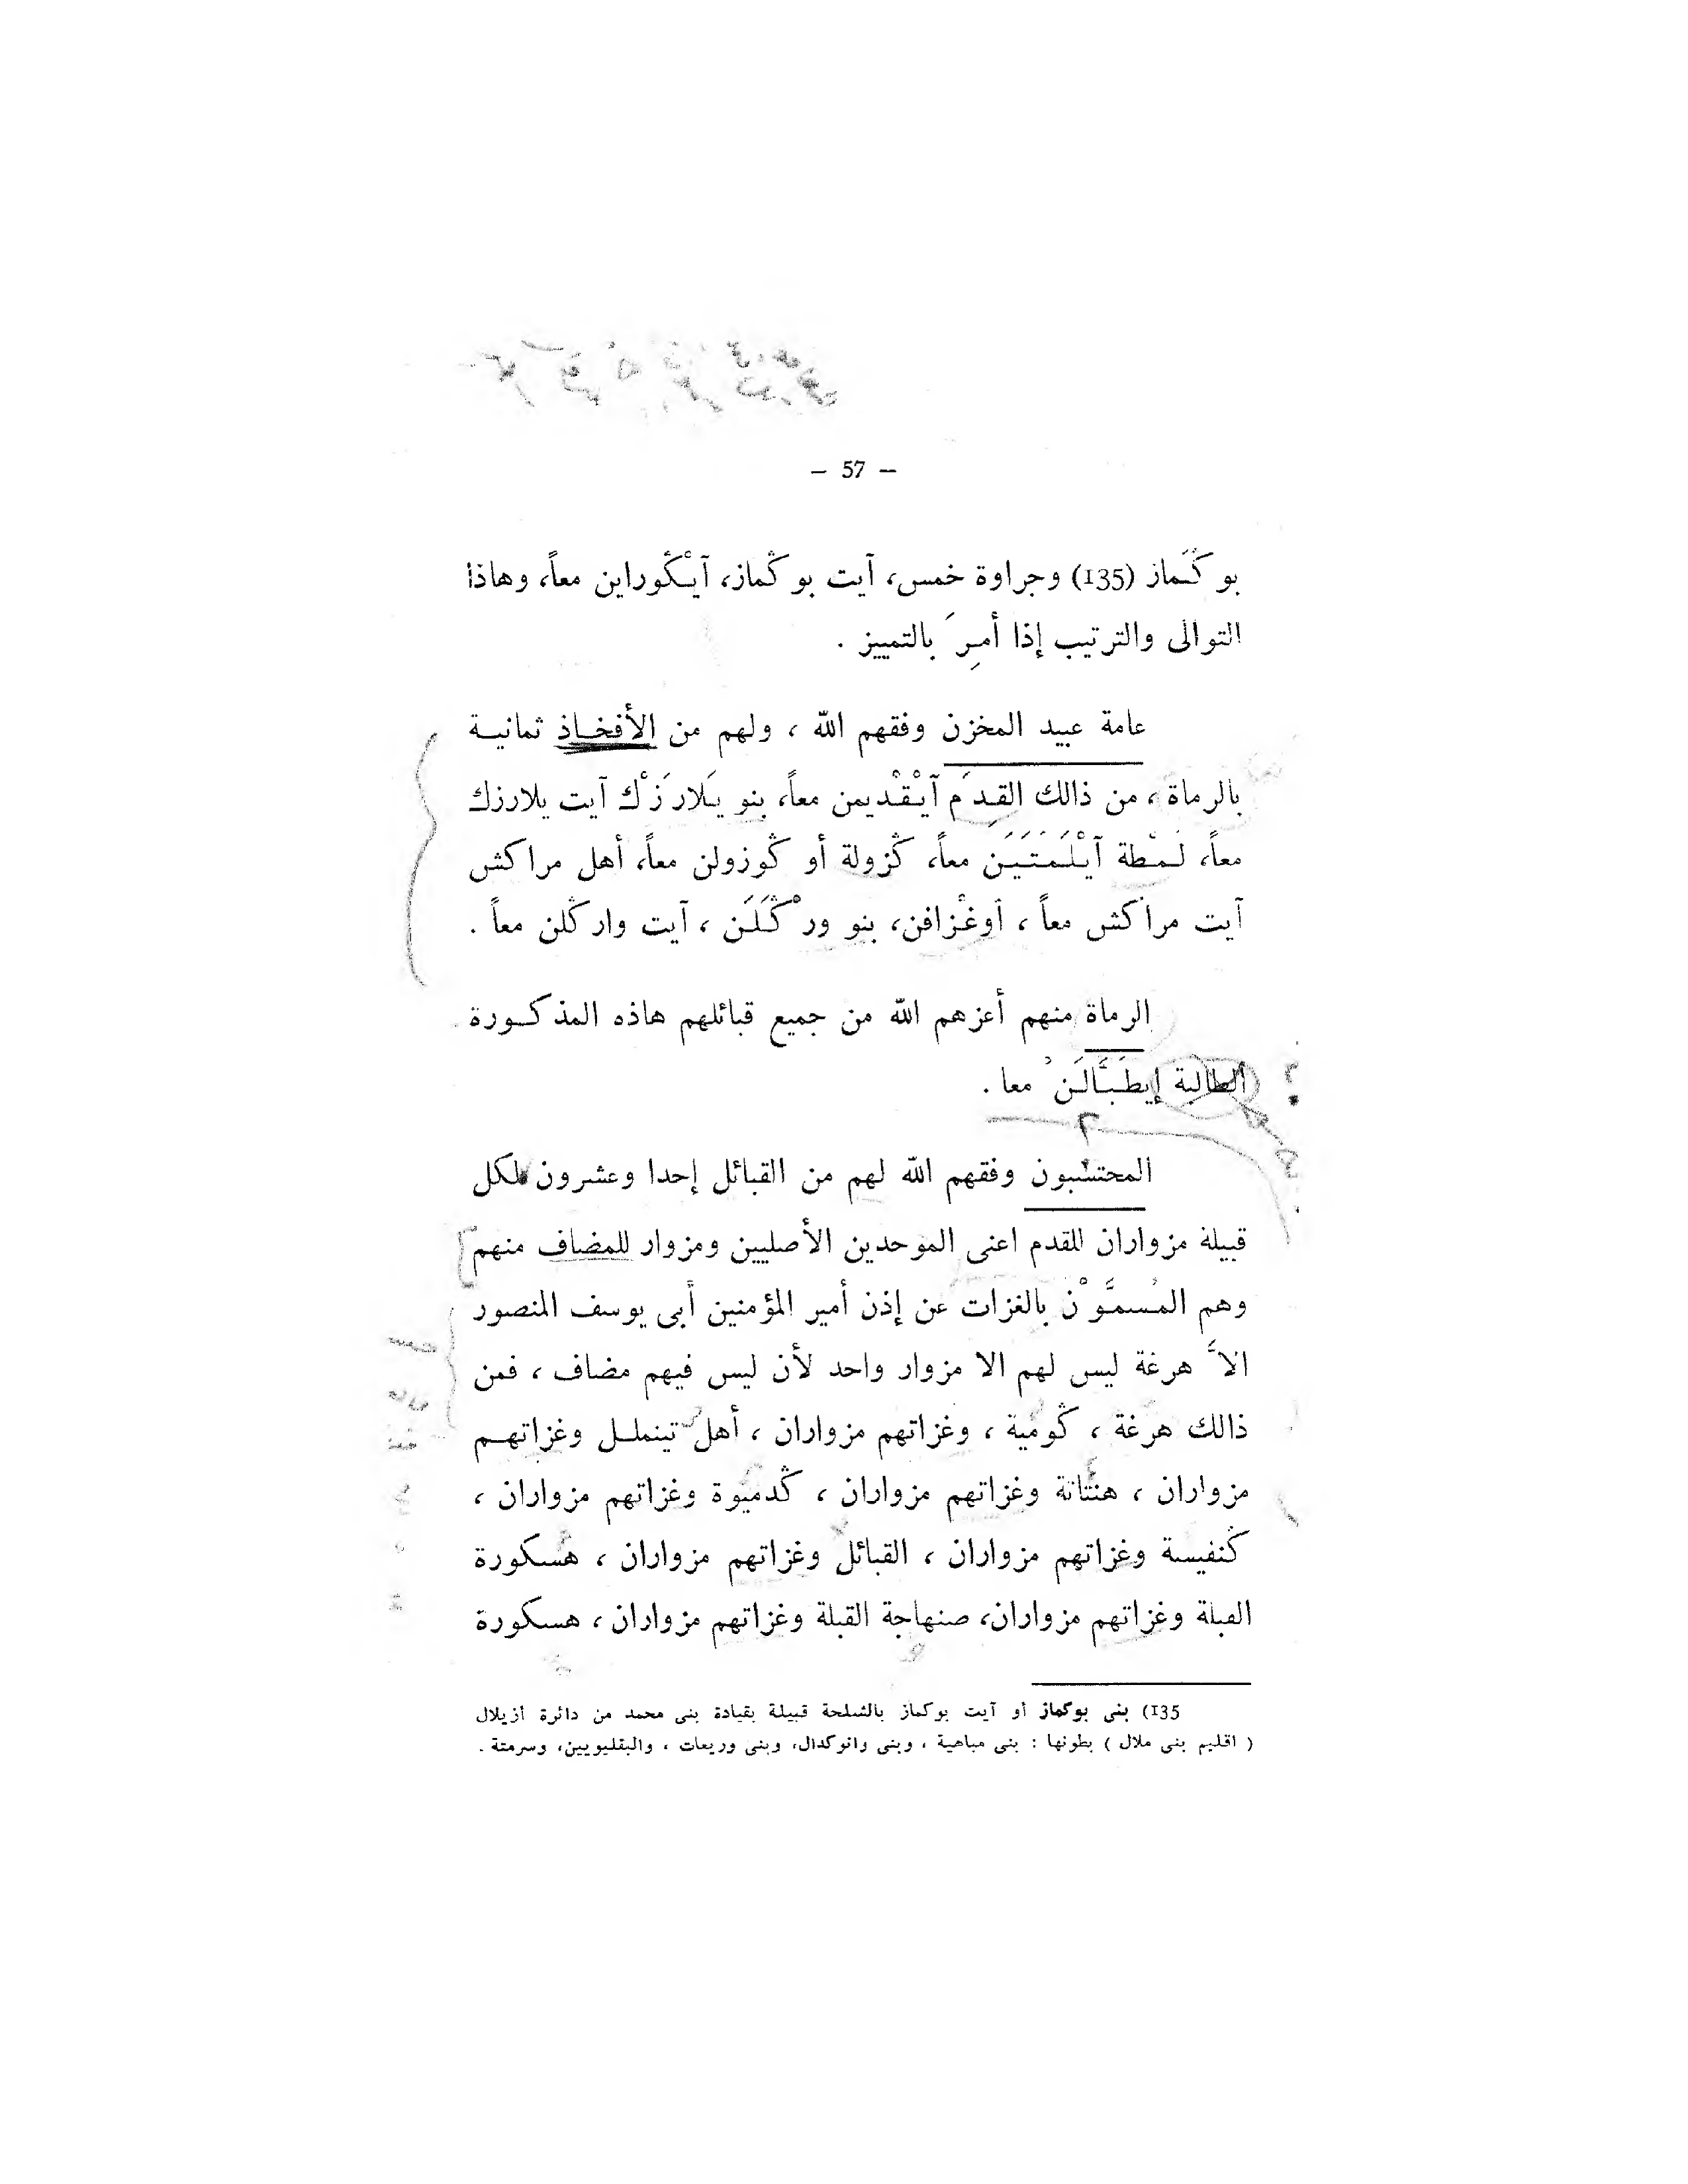 – 57 –
بو ڭَماز (135) وجراوة خمس، آيت بو ڭماز، آيْڭوراين معاً، وهاذا
التوالى والترتيب إذا أمِرَ بالتمييز .
عامة عبيد المخزن وفقهم الله ، ولهم من الأفخاذ ثمانية
بالرماة ، من ذالك القدَم آيْقْديمن معاً، بنو يَلارَزْك آيت يلارزك
معاً، لمْطة آيْلَمَتَيَن معاً، ڭزولة أو ڭوزولن معاً، أهل مراكش
آيت مراكش معاً ، أوغْزافن، بنو ورْڭَلَن ، آيت وارڭلن معاً .
الرماة منهم أعزهم الله من جميع قبائلهم هاذه المذكورة
الطالبة إيطَبَّالَن معا .
المحتسبون وفقهم الله لهم من القبائل إحدا وعشرون لكل
قبيلة مزواران للمقدم اعنى الموحدين الأصليين ومزوار للمضاف منهم
وهم المُسمَّوْن بالغزات عن إذن أمير المؤمنين أبى يوسف المنصور
الاَّ هرغة ليس لهم الا مزوار واحد لأن ليس فيهم مضاف ، فمن
ذالك هرغة ، ڭومية ، وغزاتهم مزواران ، أهل تينملل وغزاتهم
مزواران ، هنتاتة وغزاتهم مزواران ، ڭدميوة وغزاتهم مزواران ،
ڭنفيسة وغزاتهم مزواران ، القبائل وغزاتهم مزواران ، هسكورة
القبلة وغزاتهم مزواران، صنهاجة القبلة وغزاتهم مزواران ، هسكورة
135) بنى بوڭماز أو آيت بوكماز بالشلحة قبيلة بقيادة بنى محمد من دائرة أزيلال
( اقليم بنى ملال ) بطونها : بنى مباهية ، وبنى وانوكدال، وبنى وريعات ، والبقليويين، وسرمتة .